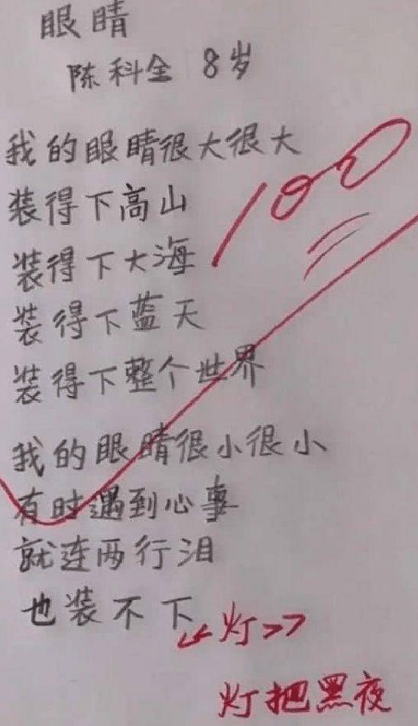 眼睛
陈科全 8岁
我的眼睛很大很大
装得下高山
装得下大海
装得下蓝天
装得下整个世界
我的眼睛很小很小
有时遇到心事
就连两行泪
也装不下
100
《灯》
灯把黑夜